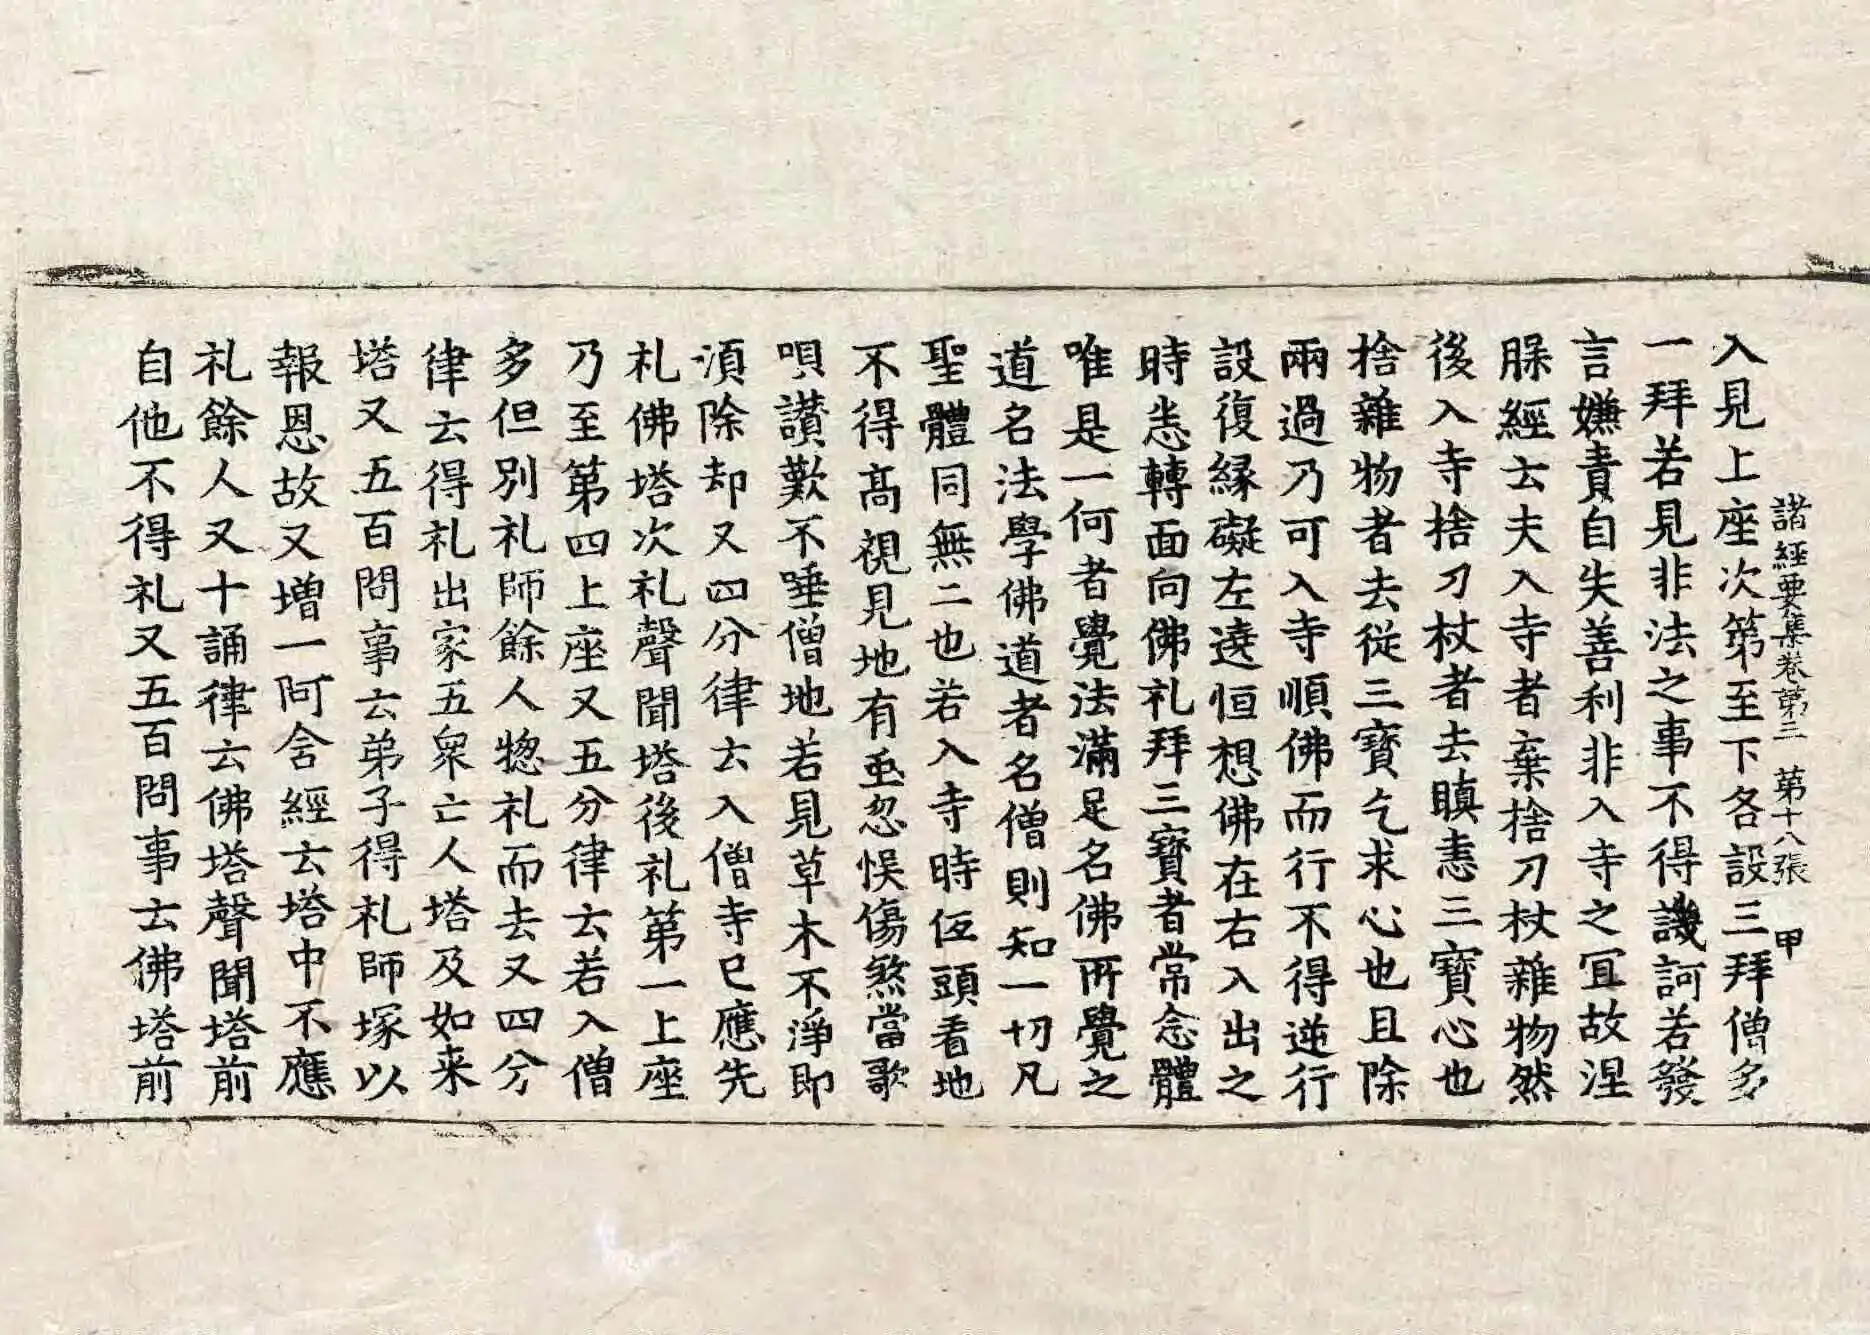 諸經要集卷第三　第十八張　甲
入見上座次第至下各設三拜僧多
一拜若見非法之事不得譏訶若發
言嫌責自失善利非入寺之冝故涅
腂經云夫入寺者棄捨刀杖雜物然
後入寺捨刀杖者去瞋恚三寶心也
捨雜物者去從三寶乞求心也且除
兩過乃可入寺順佛而行不得逆行
設復緣礙左遶恒想佛在右入出之
時恙轉面向佛礼拜三寶者常念體
唯是一何者覺法滿足名佛所覺之
道名法學佛道者名僧則知一切凡
聖體同無二也若入寺時伍頭看地
不得高視見地有䖝忽悞傷煞當歌
唄讃歎不唾僧地若見草木不淨即
湏除却又四分律云入僧寺已應先
礼佛塔次礼聲聞塔後礼第一上座
乃至第四上座又五分律云若入僧
多但別礼師餘人揔礼而去又四分
律云得礼出家五衆亡人塔及如来
塔又五百問事云弟子得礼師塚以
報恩故又增一阿含經云塔中不應
礼餘人又十誦律云佛塔聲聞塔前
自他不得礼又五百問事云佛塔前